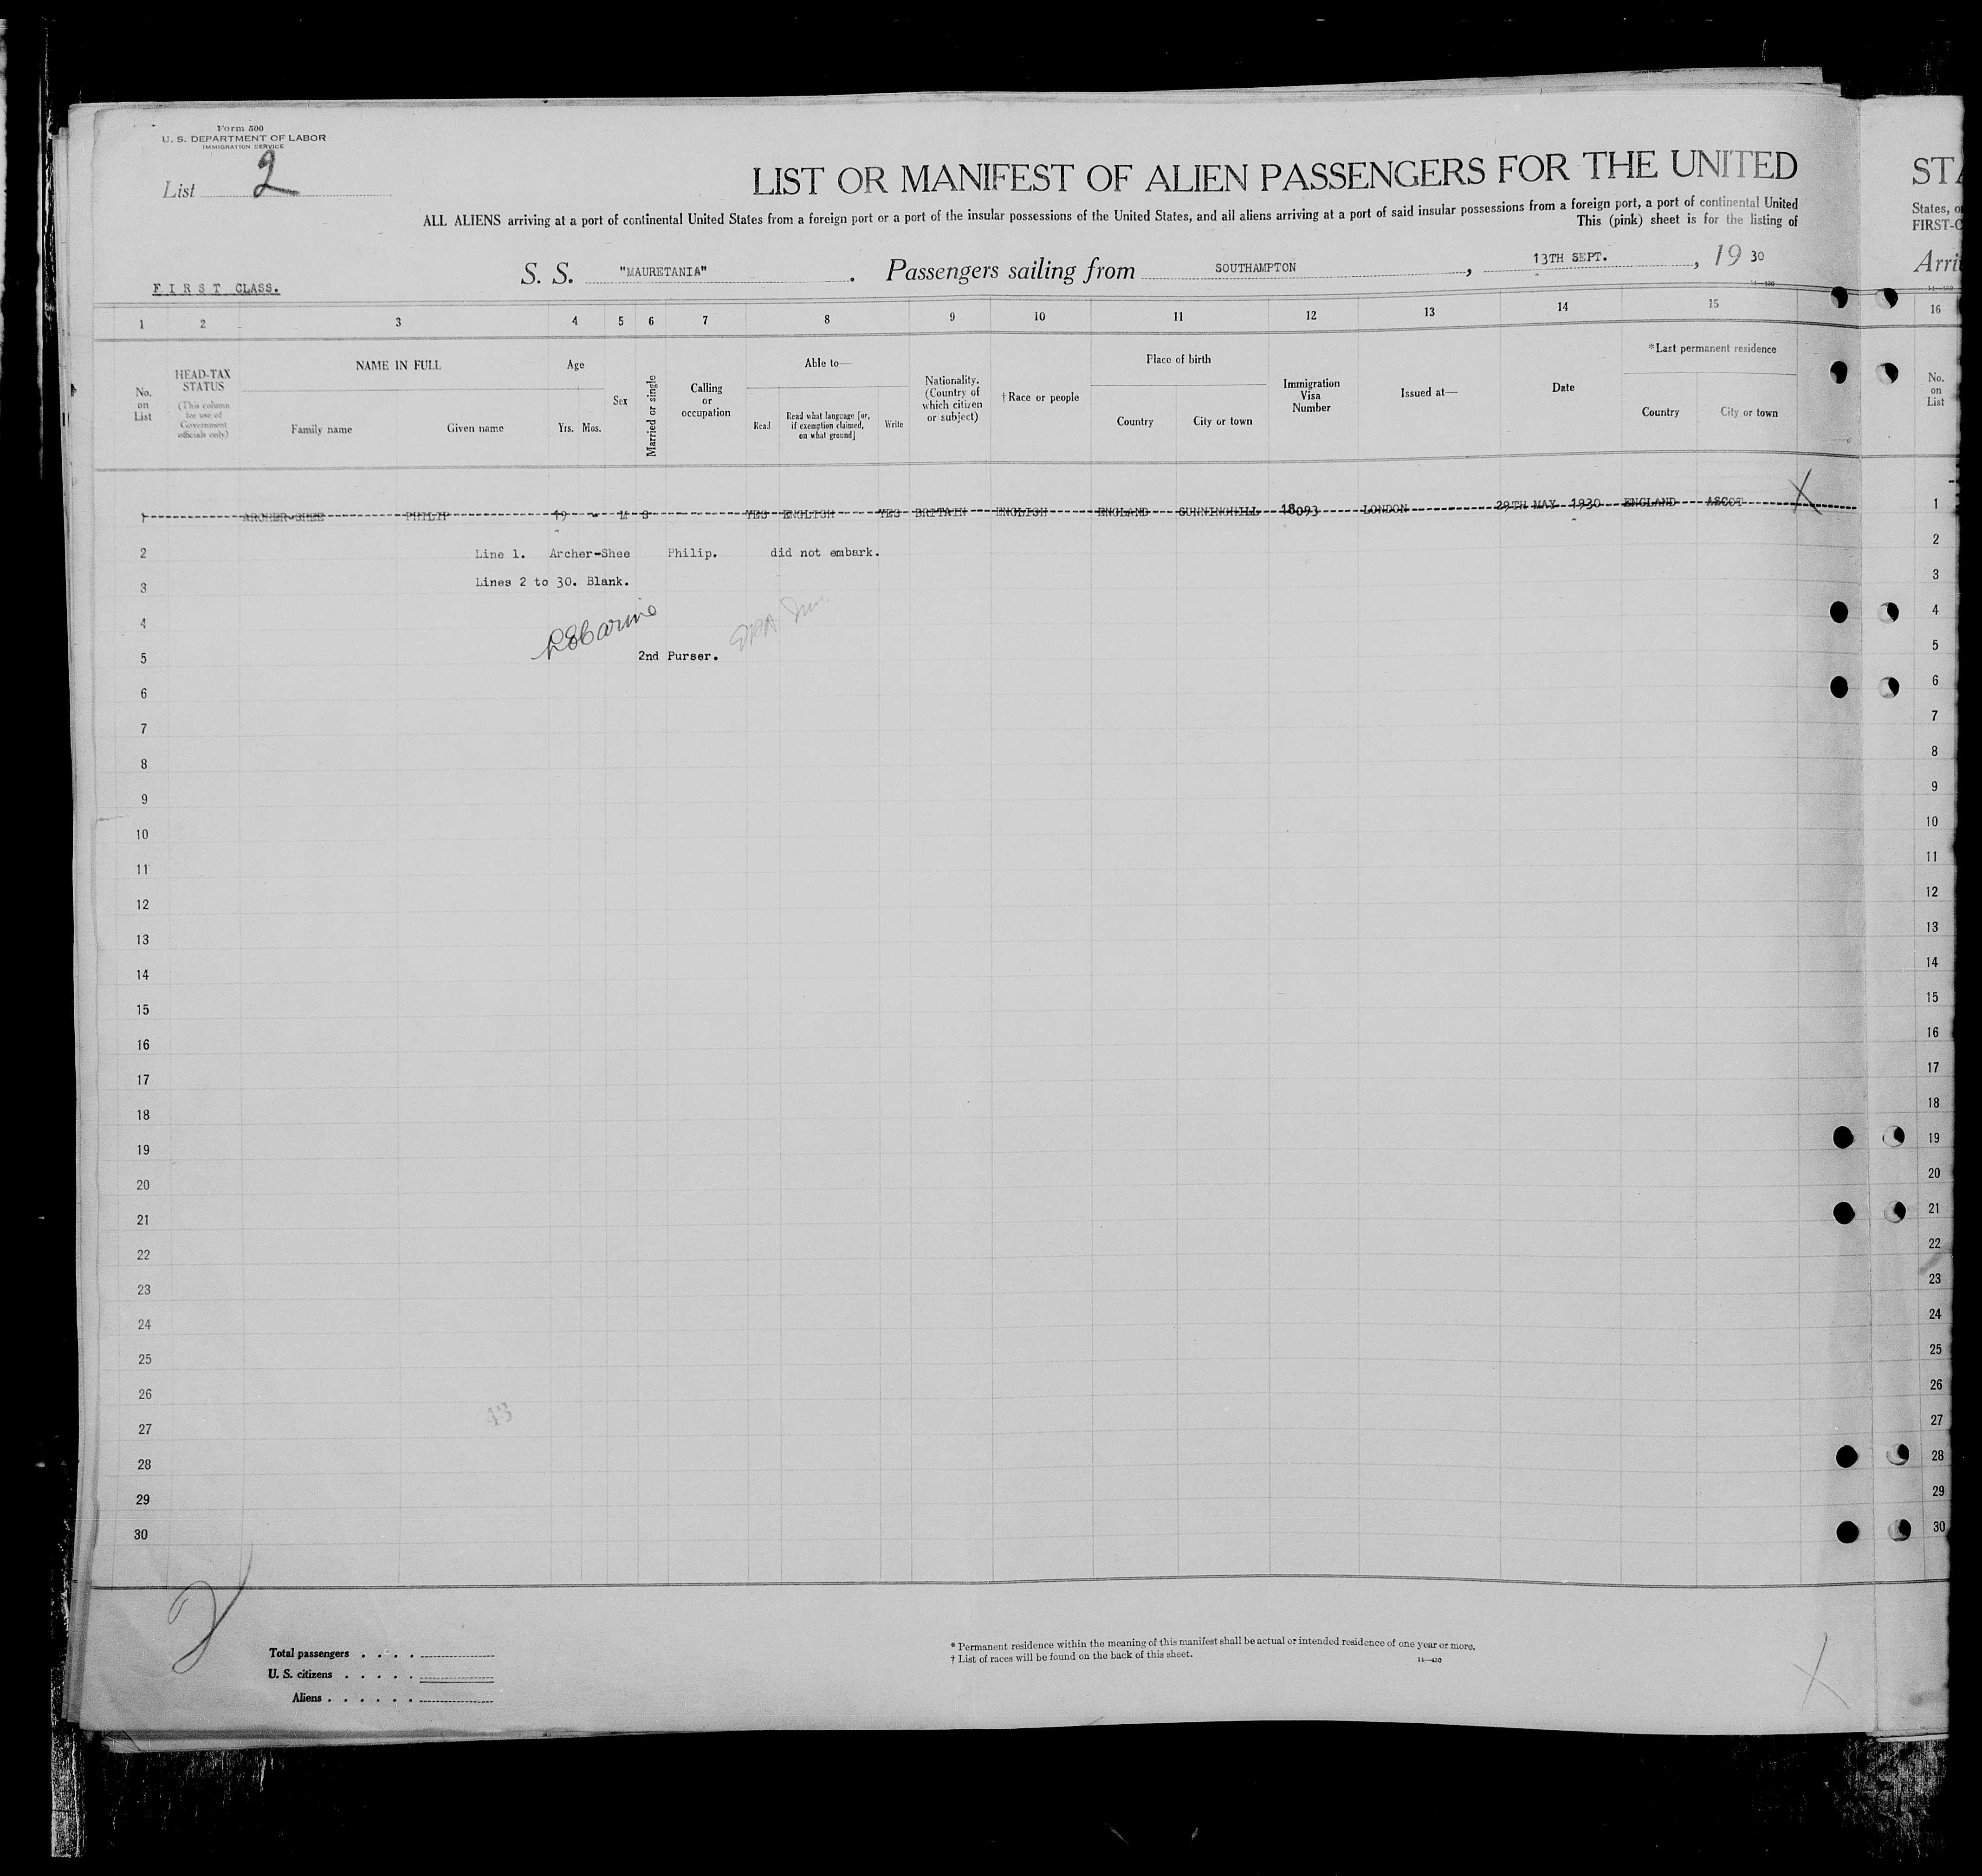 Form 500
U. S. DEPARTMENT OF LABOR
IMMIGRATION SERVICE
List 2
LIST OR MANIFEST OF ALIEN PASSENGERS FOR THE UNITED
ALL ALIENS arriving at a port of continental United States from a foreign port or a port of the insular possessions of the United States, and all aliens arriving at a port of said insular possessions from a foreign port, a port of continental United
This (pink) sheet is for the listing of
FIRST CLASS.
S. S. "MAURETANIA". Passengers sailing from SOUTHAMPTON, 13TH SEPT., 19 30
1 2 3 4 5 6 7 8 9 10 11 12 13 14 15
No. on List
HEAD-TAX STATUS
(This column for use of Government officials only)
NAME IN FULL
Family name Given name
Age
Yrs. Mos.
Sex
Married or single
Calling or occupation
Able to—
Read
Read what language [or, if exemption claimed, on what ground]
Write
Nationality. (Country of which citizen or subject)
†Race or people
Place of birth
Country City or town
Immigration Visa Number
Issued at—
Date
*Last permanent residence
Country City or town
1 ARCHER-SHEE PHILIP 19 - M S YES ENGLISH YES BRITAIN ENGLISH ENGLAND SUNNINGHILL 18093 LONDON 29TH MAY 1930 ENGLAND ASCOT X
2 Line 1. Archer-Shee Philip. did not embark.
3 Lines 2 to 30. Blank.
4
5 2nd Purser.
6
7
8
9
10
11
12
13
14
15
16
17
18
19
20
21
22
23
24
25
26
27
28
29
30
43
2
Total passengers . . . .
U. S. citizens . . . . .
Aliens . . . . . .
* Permanent residence within the meaning of this manifest shall be actual or intended residence of one year or more.
† List of races will be found on the back of this sheet.
14—430
X
STA
States, o
FIRST-C
Arri
16
No. on List
1
2
3
4
5
6
7
8
9
10
11
12
13
14
15
16
17
18
19
20
21
22
23
24
25
26
27
28
29
30